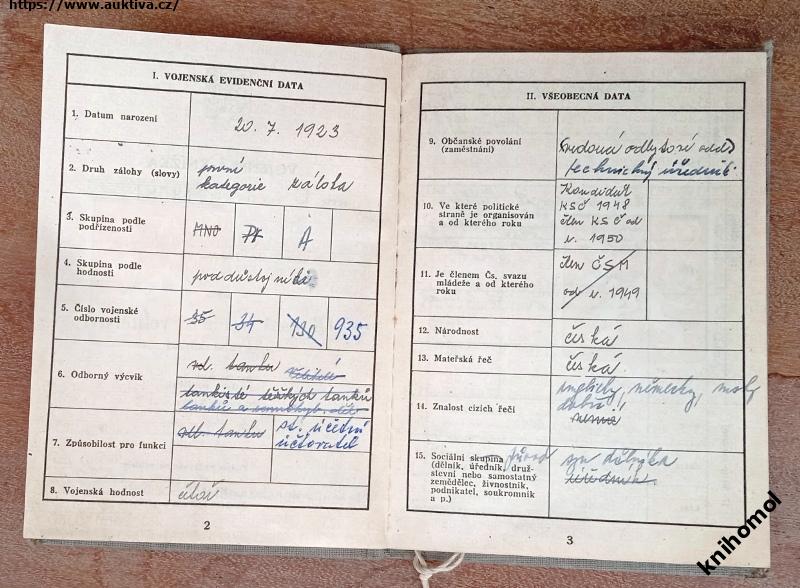 https://www.auktiva.cz/
I. VOJENSKÁ EVIDENČNÍ DATA
1. Datum narození
20. 7. 1923
2. Druh zálohy (slovy)
první
kategorie záloha
3. Skupina podle
podřízenosti
MNO
A
4. Skupina podle
hodnosti
poddůstojníci
5. Číslo vojenské
odbornosti
35 34 130 935
6. Odborný výcvik
vel. tanku
tankisté těžkých tanků
tanků a
7. Způsobilost pro funkci
vel. tanku
st. účetní
účtovatel
8. Vojenská hodnost
2
II. VŠEOBECNÁ DATA
9. Občanské povolání
(zaměstnání)
technický úředník
10. Ve které politické
straně je organisován
a od kterého roku
Kandidát
KSČ 1948
člen KSČ od
r. 1950
11. Je členem Čs. svazu
mládeže a od kterého
roku
člen ČSM
od r. 1949
12. Národnost
česká
13. Mateřská řeč
česká
14. Znalost cizích řečí
anglicky, německy, málo
dobře
nemá
15. Sociální skupina původ
(dělník, úředník, druž-
stevní nebo samostatný
zemědělec, živnostník,
podnikatel, soukromník
a p.)
syn dělníka
úředník
3
knihomol